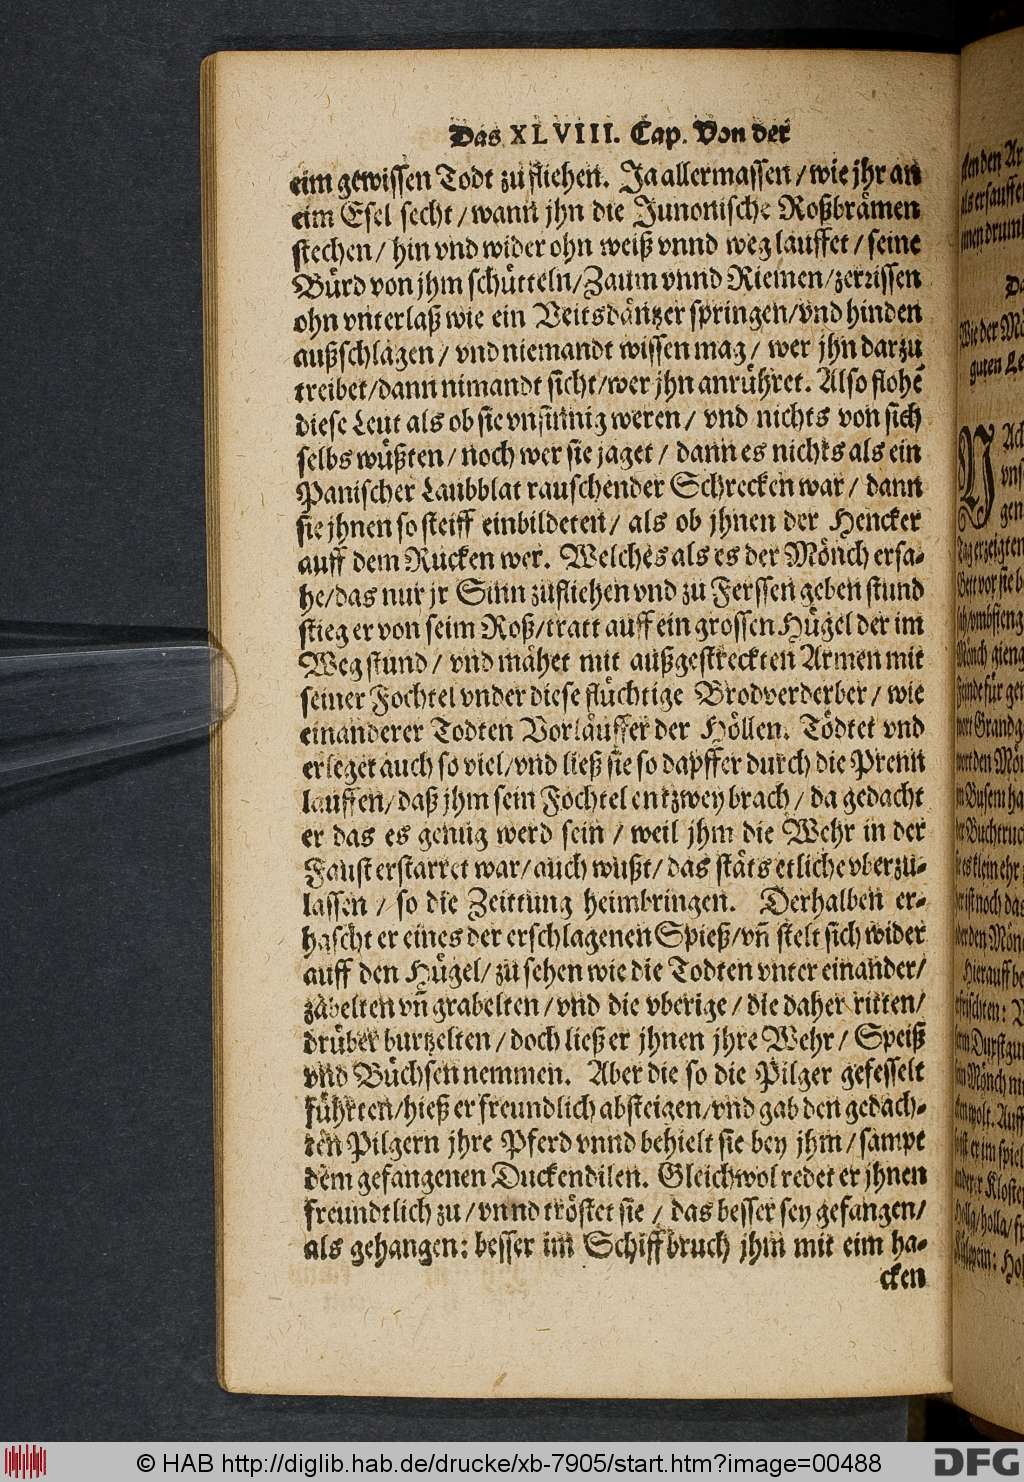 Das XLVIII. Cap. Von der
eim gewissen Todt zu fliehen. Ja aller massen / wie jhr an
eim Esel secht / wann jhn die Junonische Roßbrämen
stechen / hin vnd wider ohn weiß vnnd weg lauffet / seine
Bürd von jhm schütteln / Zaum vnnd Riemen / zerrissen
ohn vnterlaß wie ein Veitsdäntzer springen / vnd hinden
außschlagen / vnd niemandt wissen mag / wer jhn darzu
treibet / dann nimandt sicht / wer jhn anrühret. Also flohẽ
diese Leut als ob sie vnsinnig weren / vnd nichts von sich
selbs wüßten / noch wer sie jaget / dann es nichts als ein
Panischer Laubblat rauschender Schrecken war / dann
sie jhnen so steiff einbildeten / als ob jhnen der Hencker
auff dem Rucken wer. Welches als es der Mönch ersa-
he / das nur jr Sinn zufliehen vnd zu Ferssen geben stund
stieg er von seim Roß / tratt auff ein grossen Hügel der im
Weg stund / vnd mähet mit außgestreckten Armen mit
seiner Fochtel vnder diese flüchtige Brodverderber / wie
ein anderer Todten Vorläuffer der Höllen. Tödtet vnd
erleget auch so viel / vnd ließ sie so dapffer durch die Prenn
lauffen / daß jhm sein Fochtel entzwey brach / da gedacht
er das es genug werd sein / weil jhm die Wehr in der
Faust erstarret war / auch wußt / das stäts etliche vberzu-
lassen / so die Zeittung heimbringen. Derhalben er-
hascht er eines der erschlagenen Spieß / vñ stelt sich wider
auff den Hügel / zu sehen wie die Todten vnter einander /
zabelten vñ grabelten / vnd die vberige / die daher ritten /
drüber burtzelten / doch ließ er jhnen jhre Wehr / Speiß
vnd Büchsen nemmen. Aber die so die Pilger gefesselt
führten / hieß er freundlich absteigen / vnd gab den gedach-
ten Pilgern jhre Pferd vnnd behielt sie bey jhm / sampt
dem gefangenen Duckendilen. Gleichwol redet er jhnen
freundtlich zu / vnnd tröstet sie / das besser sey gefangen /
als gehangen: besser im Schiffbruch jhm mit eim ha-
cken
© HAB http://diglib.hab.de/drucke/xb-7905/start.htm?image=00488
DFG